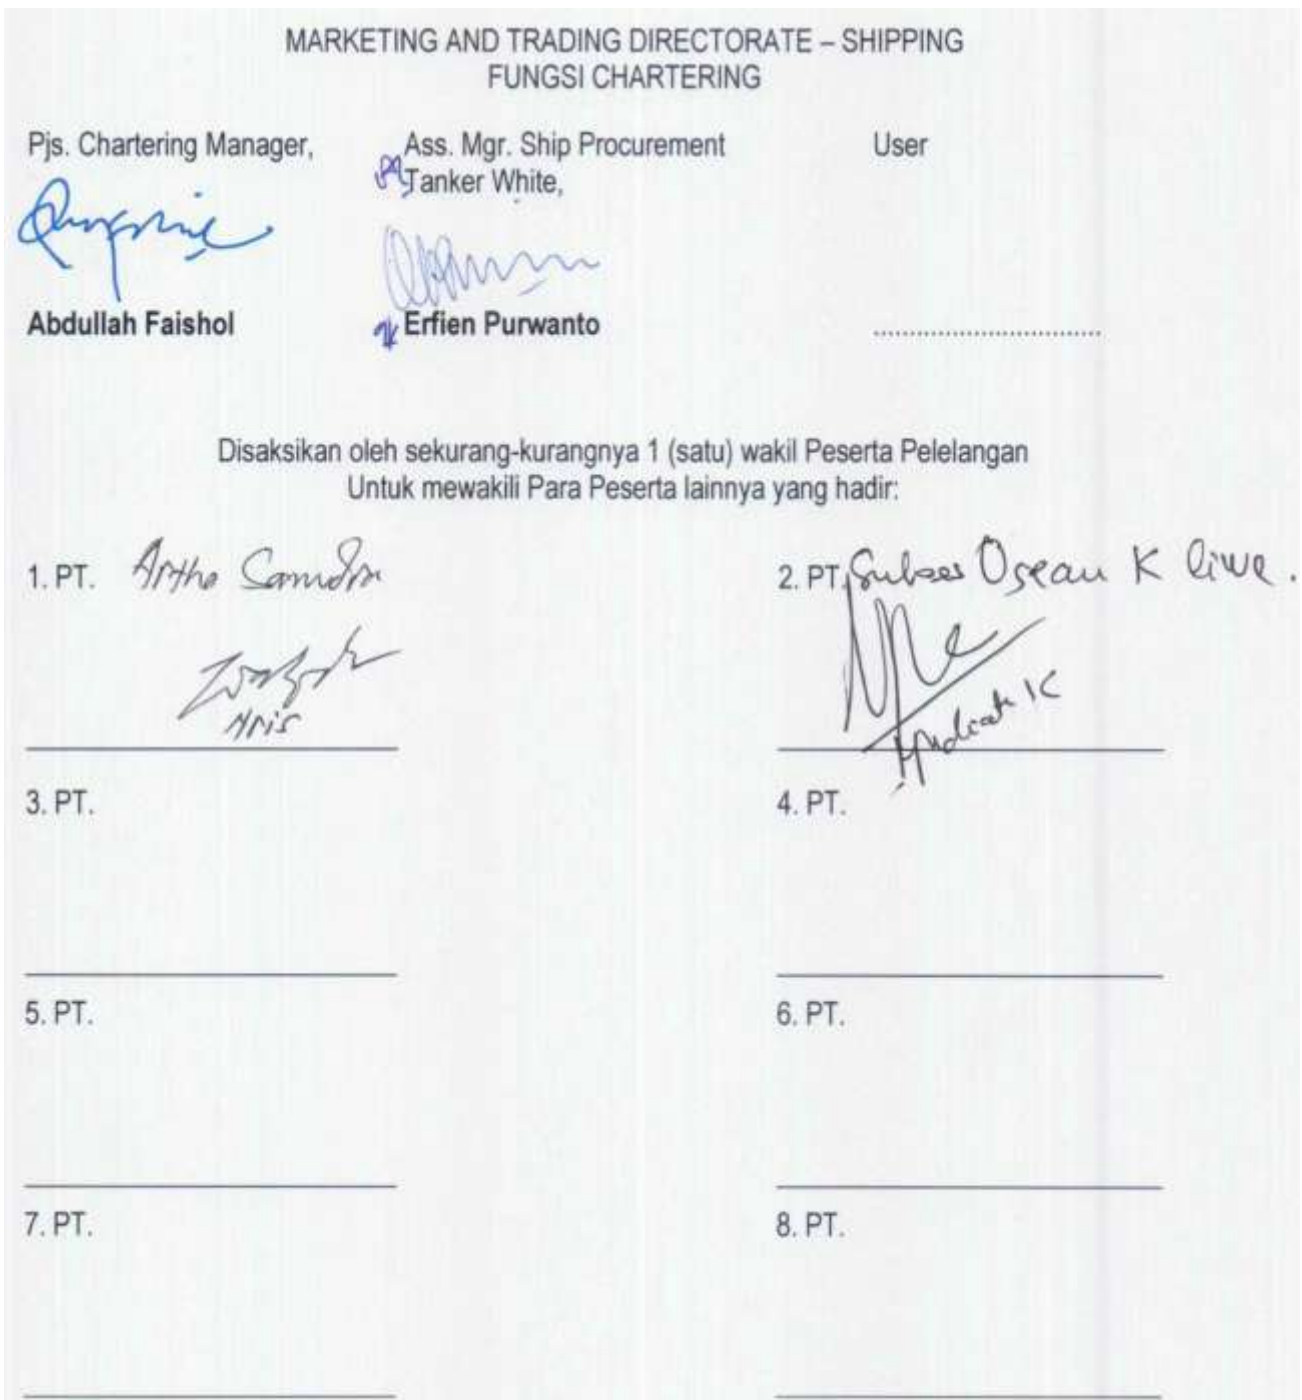 MARKETING AND TRADING DIRECTORATE – SHIPPING
FUNGSI CHARTERING
Pjs. Chartering Manager,
Ass. Mgr. Ship Procurement
Tanker White,
User
Abdullah Faishol
Erfien Purwanto
..............................
Disaksikan oleh sekurang-kurangnya 1 (satu) wakil Peserta Pelelangan
Untuk mewakili Para Peserta lainnya yang hadir:
1. PT. Artha Samudra
2. PT. Sukses Osean K line.
Aris
3. PT.
4. PT.
5. PT.
6. PT.
7. PT.
8. PT.